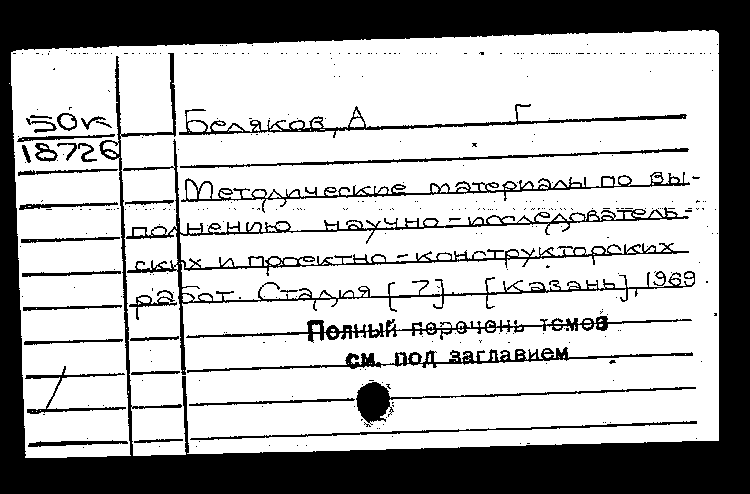 50к Беляков, А Г
18726
Методические материалы по вы-
полнению научно-исследователь-
ских и проектно-конструкторских
работ. Стадия [7]. [Казань], 1969
Полный перечень томов
см. под заглавием